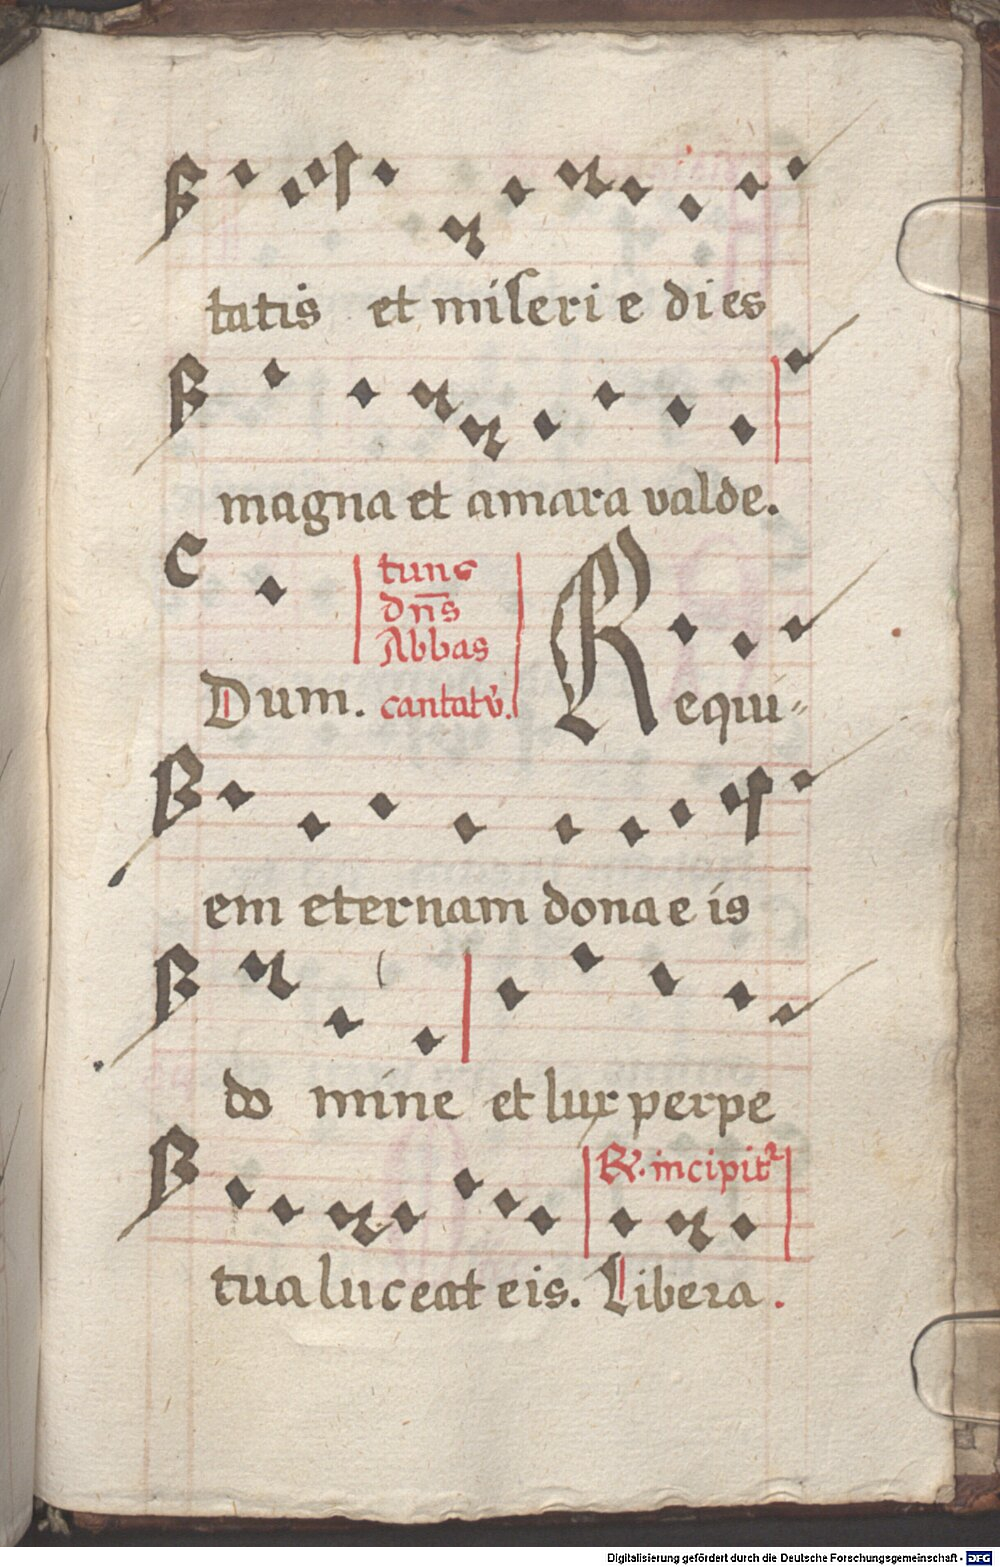 tatis et miserie dies
magna et amara valde.
Dum. tunc
dns
Abbas
cantat. Requi-
em eternam dona eis
domine et lux perpe
R. incipit
tua luceat eis. Libera.
Digitalisierung gefördert durch die Deutsche Forschungsgemeinschaft - DFG